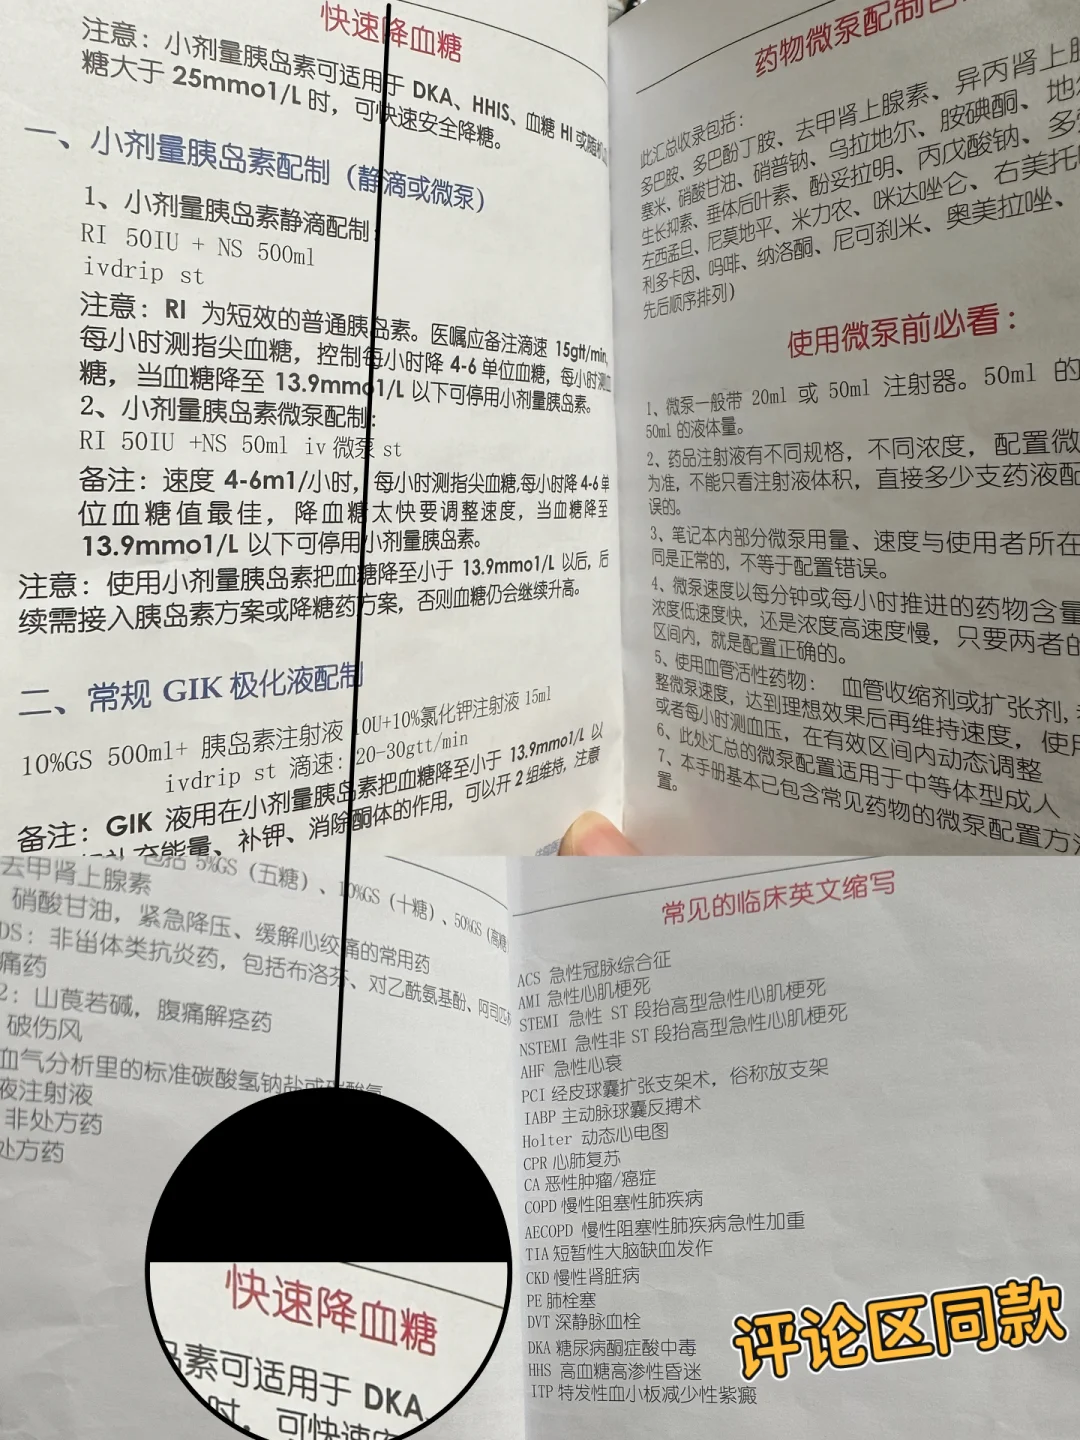 快速降血糖
注意：小剂量胰岛素可适用于 DKA、HHIS、血糖 HI 或随机血
糖大于 25mmo1/L 时，可快速安全降糖。
一、小剂量胰岛素配制（静滴或微泵）
1、小剂量胰岛素静滴配制
RI 50IU + NS 500ml
ivdrip st
注意：RI 为短效的普通胰岛素。医嘱应备注滴速 15gtt/min,
每小时测指尖血糖，控制每小时降 4-6 单位血糖，每小时测血
糖，当血糖降至 13.9mmo1/L 以下可停用小剂量胰岛素。
2、小剂量胰岛素微泵配制：
RI 50IU +NS 50ml iv 微泵 st
备注：速度 4-6m1/小时，每小时测指尖血糖,每小时降 4-6 单
位血糖值最佳，降血糖太快要调整速度，当血糖降至
13.9mmo1/L 以下可停用小剂量胰岛素。
注意：使用小剂量胰岛素把血糖降至小于 13.9mmo1/L 以后，后
续需接入胰岛素方案或降糖药方案，否则血糖仍会继续升高。
二、常规 GIK 极化液配制
10%GS 500ml+ 胰岛素注射液 10U+10%氯化钾注射液 15ml
ivdrip st 滴速：20-30gtt/min
备注：GIK 液用在小剂量胰岛素把血糖降至小于 13.9mmo1/L 以
补充能量、补钾、消除酮体的作用，可以开 2 组维持，注意
药物微泵配制
此汇总收录包括：
多巴胺、多巴酚丁胺、去甲肾上腺素、异丙肾上腺
塞米、硝酸甘油、硝普钠、乌拉地尔、胺碘酮、地
生长抑素、垂体后叶素、酚妥拉明、丙戊酸钠、多
左西孟旦、尼莫地平、米力农、咪达唑仑、右美托
利多卡因、吗啡、纳洛酮、尼可刹米、奥美拉唑、
先后顺序排列）
使用微泵前必看：
1、微泵一般带 20ml 或 50ml 注射器。50ml 的
50ml 的液体量。
2、药品注射液有不同规格，不同浓度，配置微
为准，不能只看注射液体积，直接多少支药液配
误的。
3、笔记本内部分微泵用量、速度与使用者所在
同是正常的，不等于配置错误。
4、微泵速度以每分钟或每小时推进的药物含量
浓度低速度快，还是浓度高速度慢，只要两者的
区间内，就是配置正确的。
5、使用血管活性药物：血管收缩剂或扩张剂，
整微泵速度，达到理想效果后再维持速度，使用
或者每小时测血压，在有效区间内动态调整
6、此处汇总的微泵配置适用于中等体型成人
7、本手册基本已包含常见药物的微泵配置方
置。
包括 5%GS（五糖）、10%GS（十糖）、50%GS（高糖
去甲肾上腺素
硝酸甘油，紧急降压、缓解心绞痛的常用药
DS：非甾体类抗炎药，包括布洛芬、对乙酰氨基酚、阿司匹林
痛药
2：山莨若碱，腹痛解痉药
破伤风
血气分析里的标准碳酸氢钠盐或碳酸氢
液注射液
非处方药
处方药
常见的临床英文缩写
ACS 急性冠脉综合征
AMI 急性心肌梗死
STEMI 急性 ST 段抬高型急性心肌梗死
NSTEMI 急性非 ST 段抬高型急性心肌梗死
AHF 急性心衰
PCI 经皮球囊扩张支架术，俗称放支架
IABP 主动脉球囊反搏术
Holter 动态心电图
CPR 心肺复苏
CA 恶性肿瘤/癌症
COPD 慢性阻塞性肺疾病
AECOPD 慢性阻塞性肺疾病急性加重
TIA 短暂性大脑缺血发作
CKD 慢性肾脏病
PE 肺栓塞
DVT 深静脉血栓
DKA 糖尿病酮症酸中毒
HHS 高血糖高渗性昏迷
ITP 特发性血小板减少性紫癜
快速降血糖
岛素可适用于 DKA、
时，可快速安
评论区同款